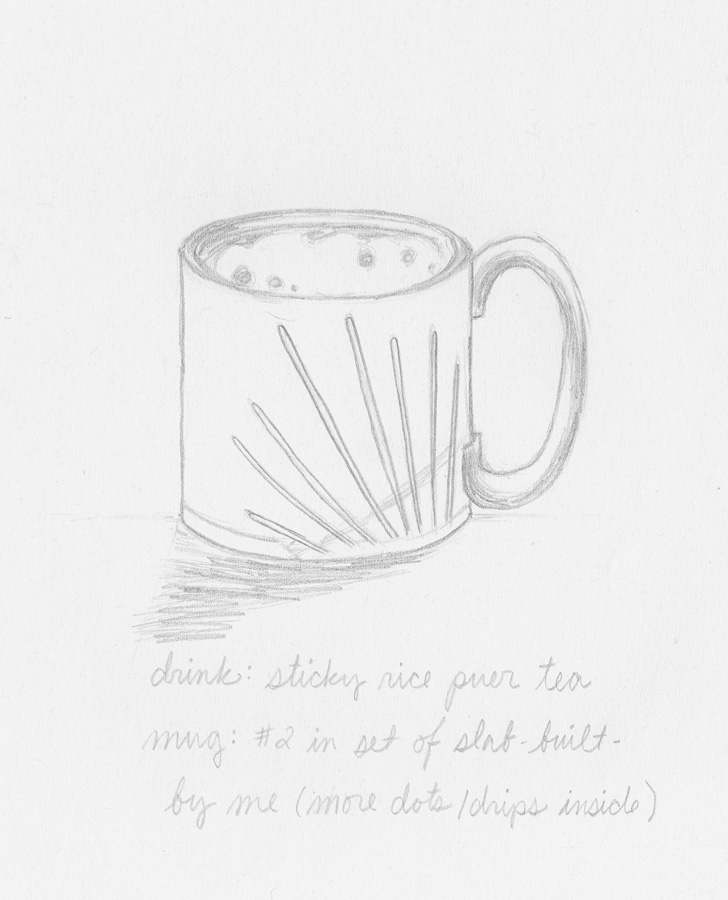 drink: sticky rice puer tea
mug: #2 in set of slab-built-
by me (more dots/drips inside)